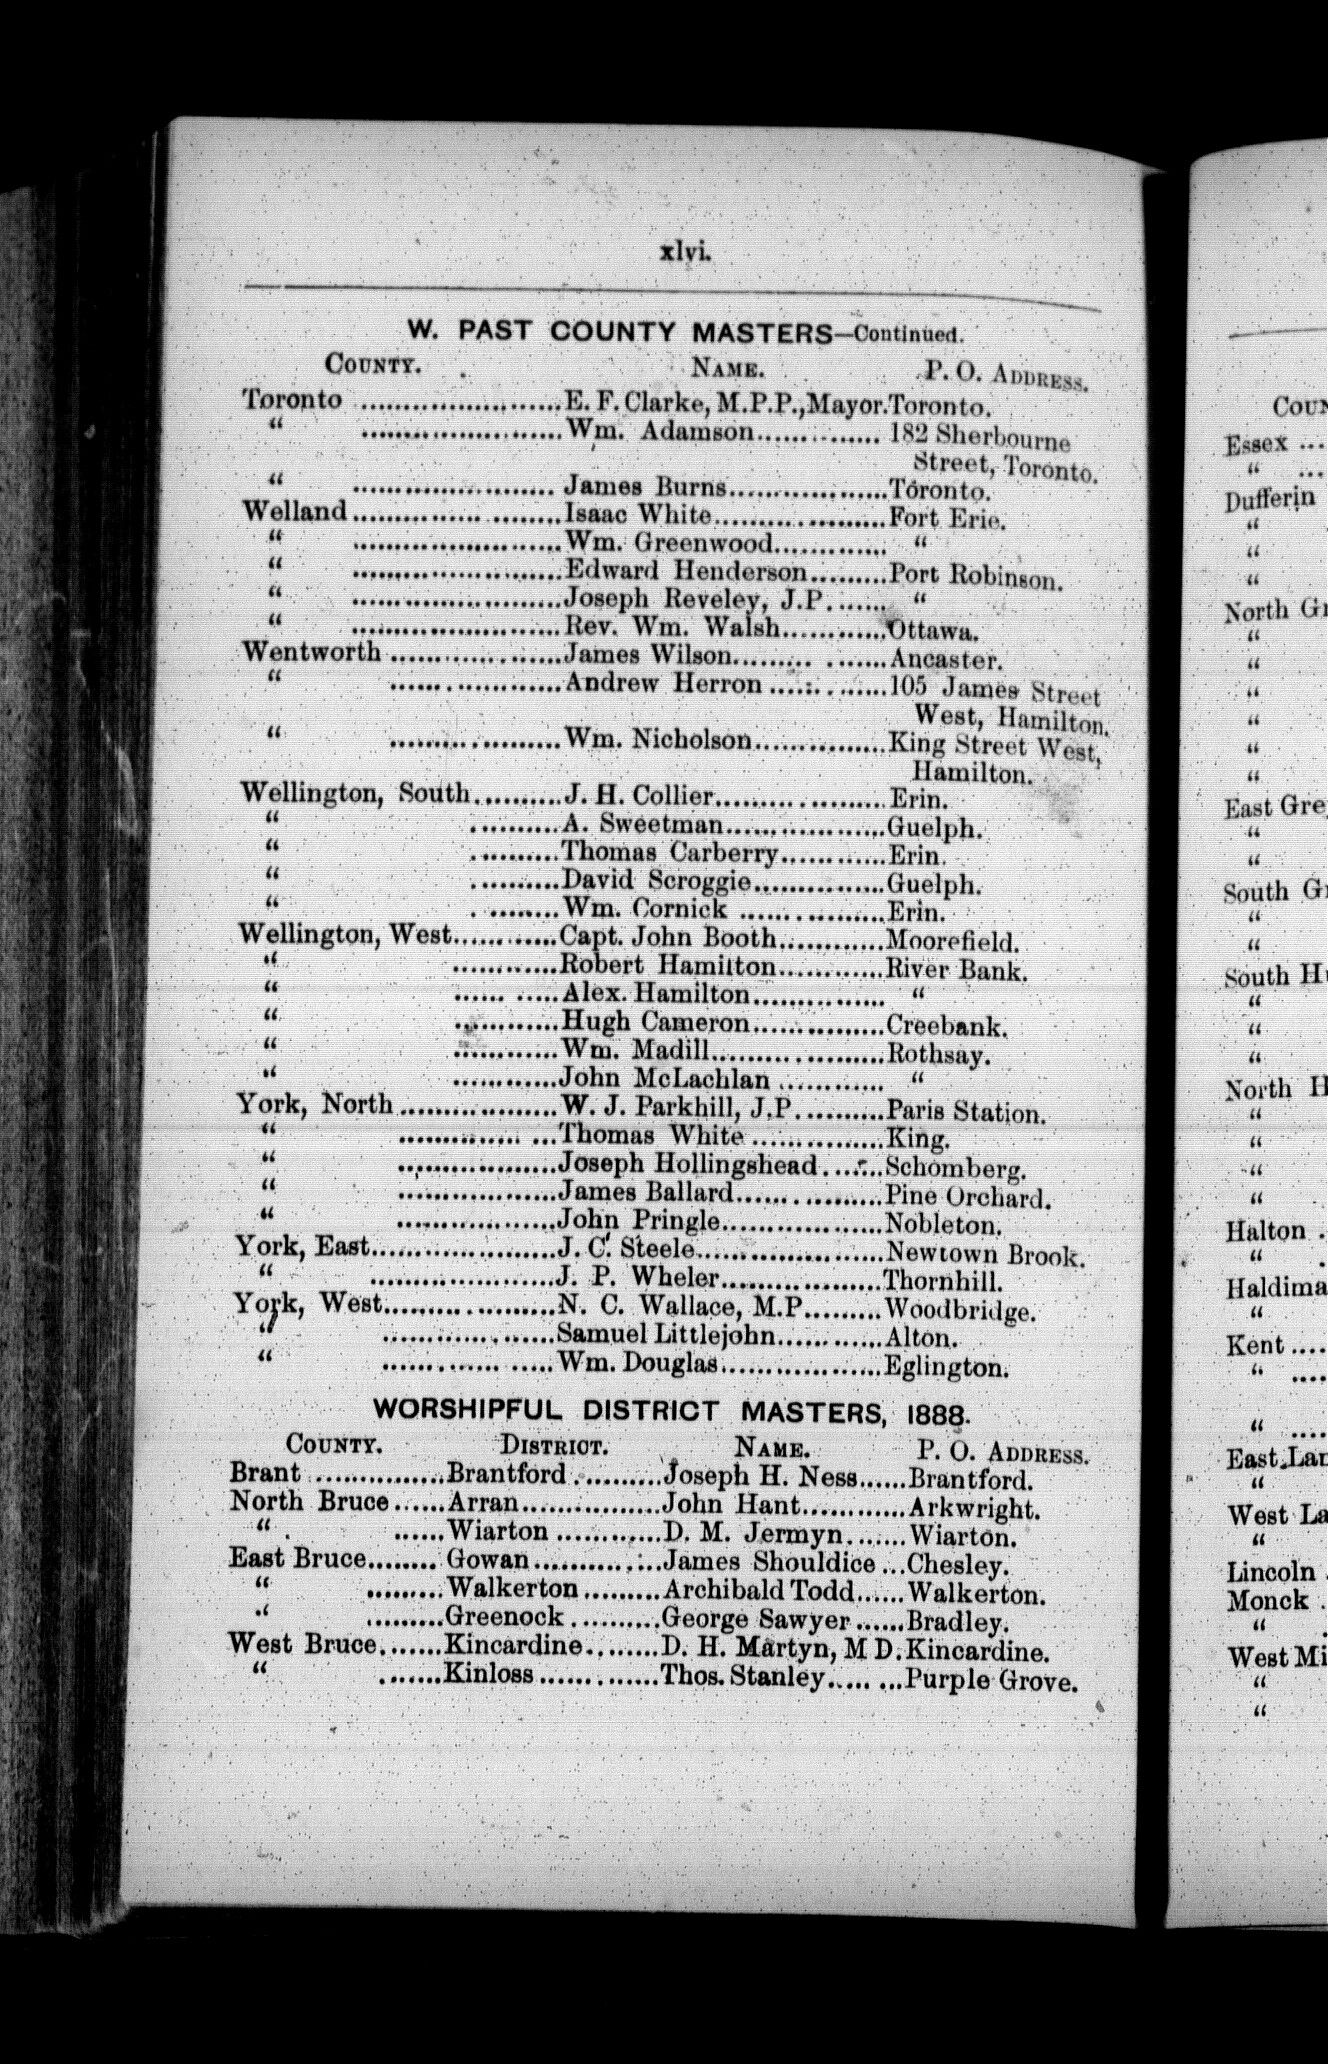 xlvi.
W. PAST COUNTY MASTERS—Continued.
COUNTY. NAME. P. O. ADDRESS.
Toronto ........................E. F. Clarke, M.P.P., Mayor.Toronto.
“ ........................Wm. Adamson............... 182 Sherbourne
Street, Toronto.
“ ........................James Burns...................Toronto.
Welland........................Isaac White....................Fort Erie.
“ ........................Wm. Greenwood............. “
“ ........................Edward Henderson.........Port Robinson.
“ ........................Joseph Reveley, J.P....... “
“ ........................Rev. Wm. Walsh............Ottawa.
Wentworth ....................James Wilson..................Ancaster.
“ ....................Andrew Herron .............105 James Street
West, Hamilton.
“ ....................Wm. Nicholson...............King Street West,
Hamilton.
Wellington, South..........J. H. Collier....................Erin.
“ ..........A. Sweetman...................Guelph.
“ ..........Thomas Carberry............Erin.
“ ..........David Scroggie...............Guelph.
“ ..........Wm. Cornick .................Erin.
Wellington, West............Capt. John Booth............Moorefield.
“ ............Robert Hamilton............River Bank.
“ ............Alex. Hamilton............... “
“ ............Hugh Cameron...............Creebank.
“ ............Wm. Madill....................Rothsay.
“ ............John McLachlan ............ “
York, North..................W. J. Parkhill, J.P..........Paris Station.
“ ..................Thomas White ...............King.
“ ..................Joseph Hollingshead.......Schomberg.
“ ..................James Ballard.................Pine Orchard.
“ ..................John Pringle...................Nobleton.
York, East.....................J. C. Steele......................Newtown Brook.
“ .....................J. P. Wheler...................Thornhill.
York, West....................N. C. Wallace, M.P.........Woodbridge.
“ ....................Samuel Littlejohn............Alton.
“ ....................Wm. Douglas...................Eglington.
WORSHIPFUL DISTRICT MASTERS, 1888.
COUNTY. DISTRICT. NAME. P. O. ADDRESS.
Brant ...............Brantford ..........Joseph H. Ness......Brantford.
North Bruce......Arran................John Hant............Arkwright.
“ ......Wiarton ............D. M. Jermyn.......Wiarton.
East Bruce........Gowan...............James Shouldice ...Chesley.
“ .........Walkerton.........Archibald Todd......Walkerton.
“ .........Greenock..........George Sawyer......Bradley.
West Bruce.......Kincardine........D. H. Martyn, M D.Kincardine.
“ .......Kinloss.............Thos. Stanley........Purple Grove.
Essex ...
“ ...
Dufferin
“
“
“
North
“
“
“
“
“
“
East
“
“
South
“
“
South
“
“
“
North
“
“
“
“
Halton .
“ .
“
Kent ....
“ ....
“ ....
East
“
West
“
Lincoln .
Monck .
“ .
West
“
“